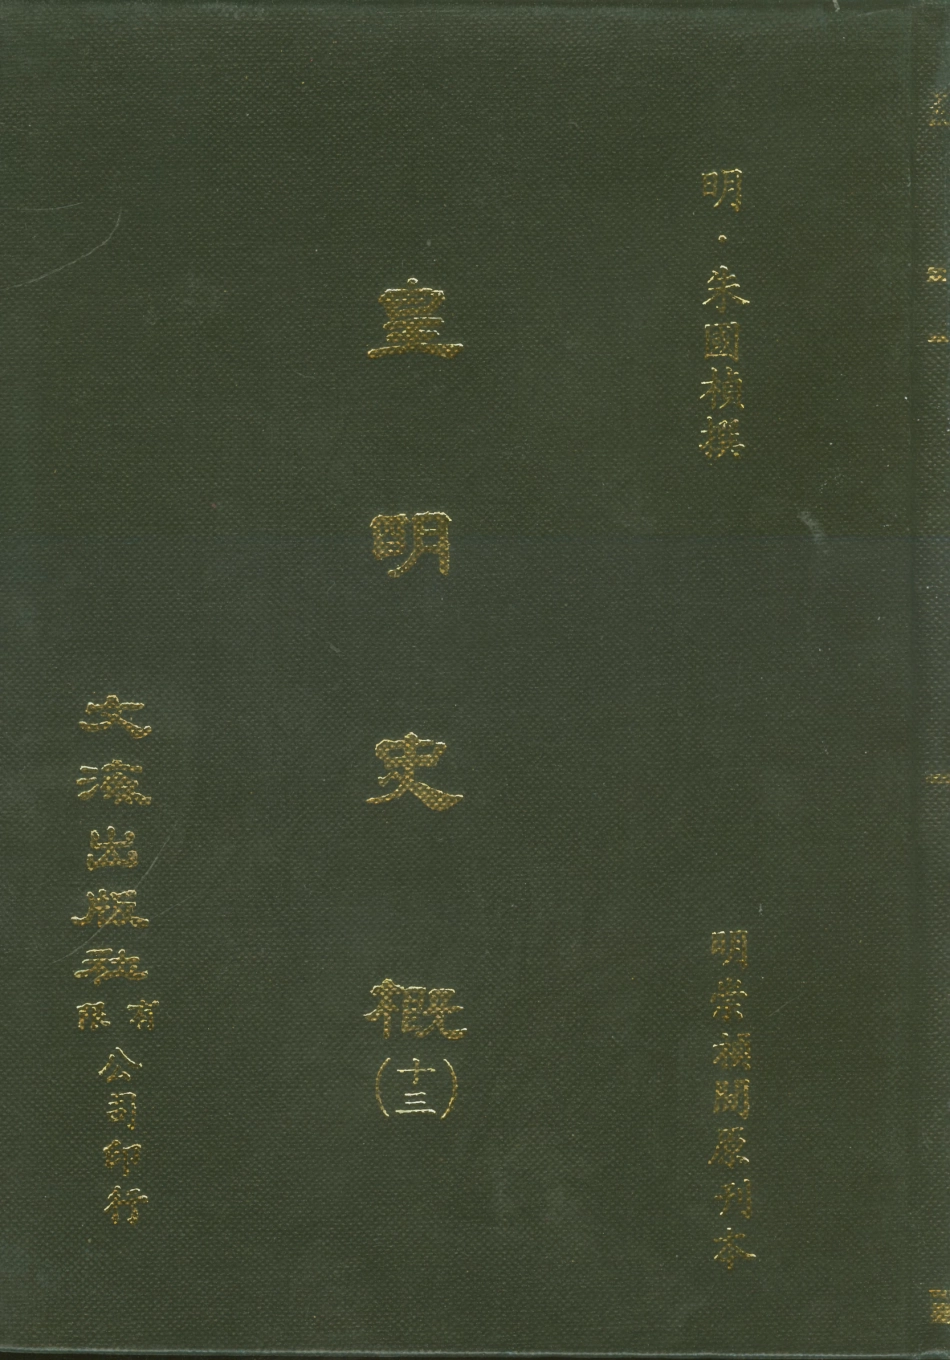 明・朱國禎撰
明崇禎間原刊本
皇明史概(十三)
文海出版社有限公司印行